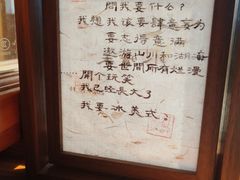 問我要什么？
我想我該要肆意妄为
要志得意滿
遨游山川和湖海
要世間所有烂漫
開个玩笑
我已经長大了
我要冰美式